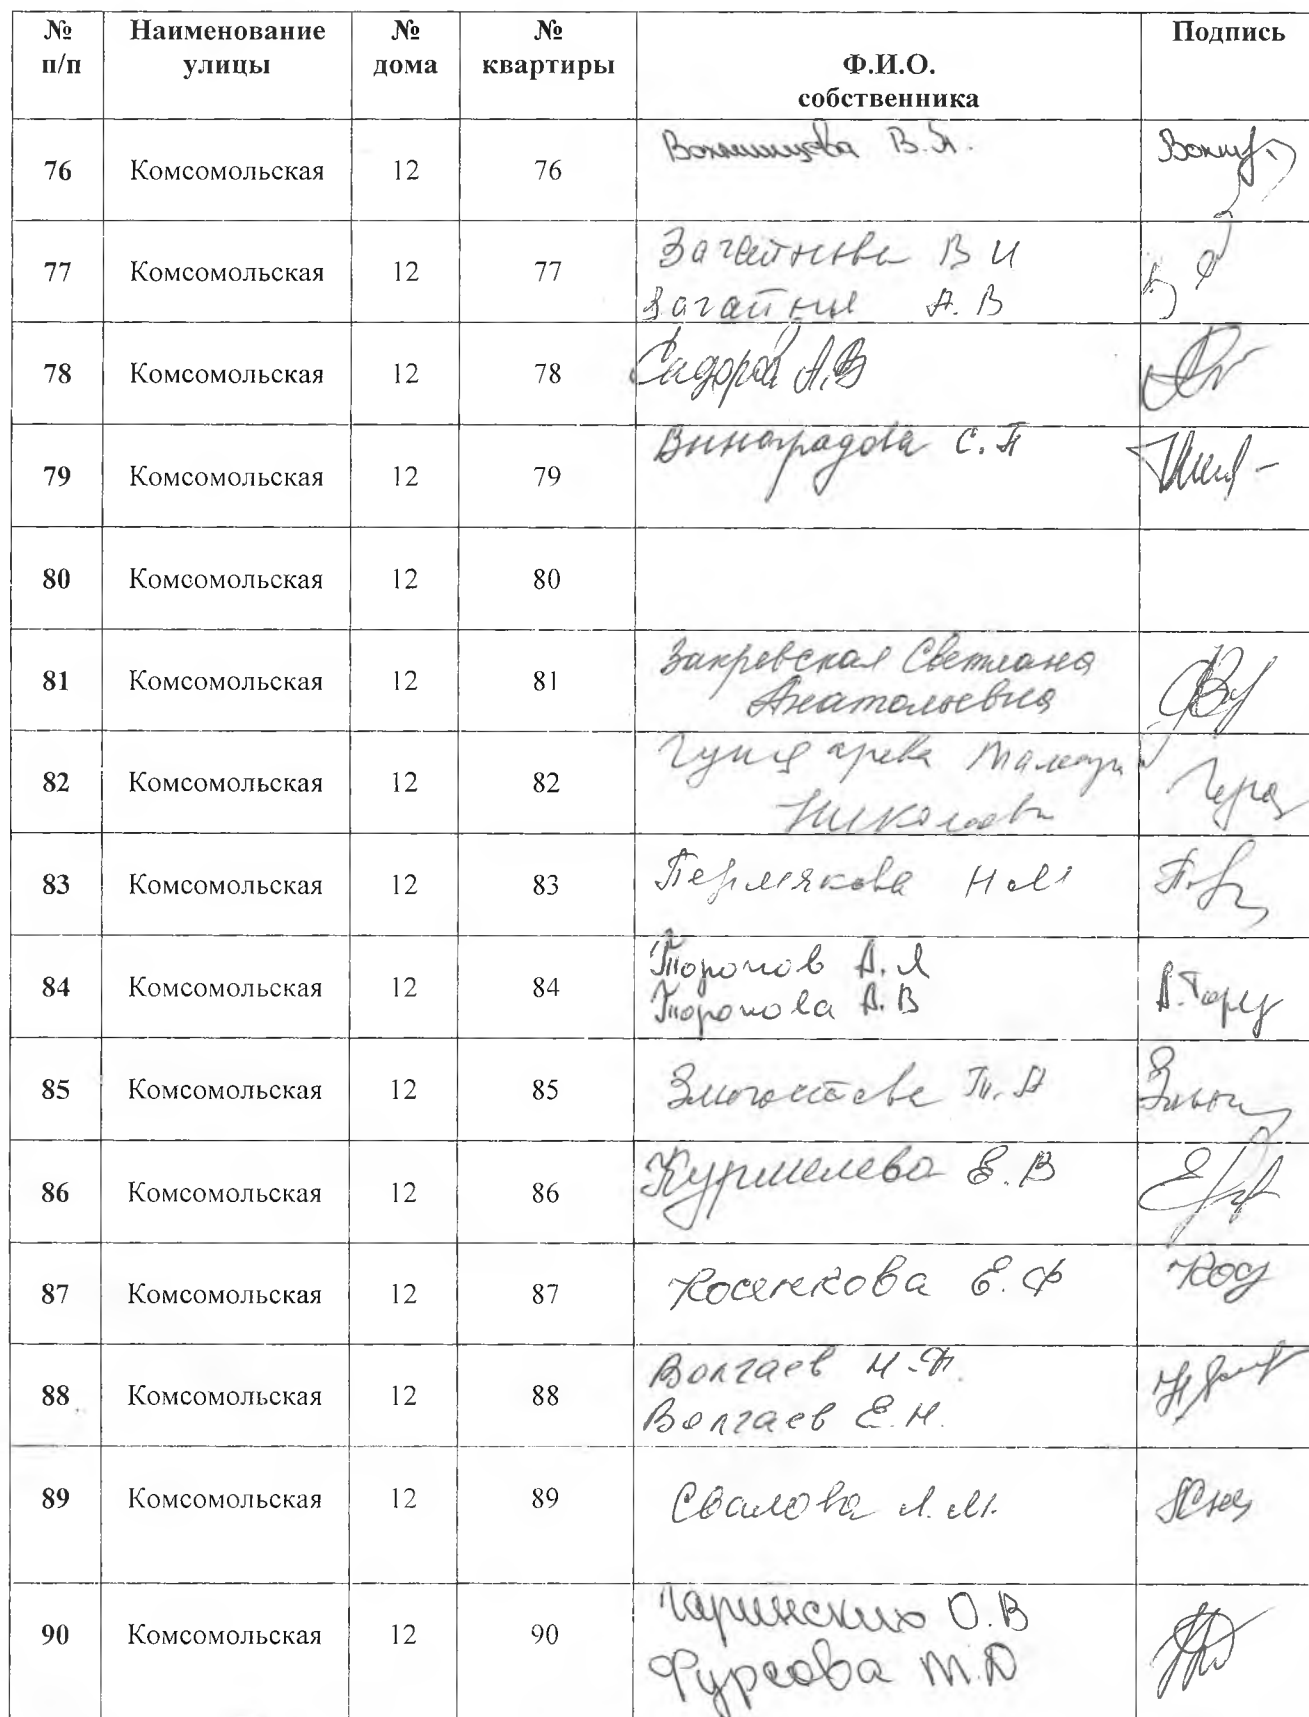 № п/п Наименование улицы № дома № квартиры Ф.И.О. собственника Подпись
76 Комсомольская 12 76 Вохминцева В.Я.
77 Комсомольская 12 77 Загайнова В И
А. В
78 Комсомольская 12 78 Сидоров А.В
79 Комсомольская 12 79 Виноградова С.П
80 Комсомольская 12 80
81 Комсомольская 12 81 Закревская Светлана
Анатольевна
82 Комсомольская 12 82
83 Комсомольская 12 83 Пермякова Н М
84 Комсомольская 12 84 Торопов А.Л
Торопова А.В А.Тор
85 Комсомольская 12 85 Т.А
86 Комсомольская 12 86 Курмелева Е.В
87 Комсомольская 12 87 Косенкова Е.Ф Кос
88 Комсомольская 12 88 Волгаев Н.П.
Волгаев Е.Н.
89 Комсомольская 12 89 Свалова Л.М.
90 Комсомольская 12 90 Гаринских О.В
Фурсова М.Д